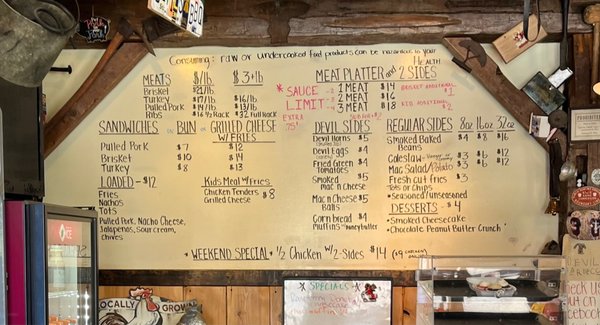 Consuming: raw or undercooked food products can be hazardous to your Health
MEATS $/1lb. $3+lb
Brisket $21/lb.
Turkey $17/lb. $16/lb
Pulled Pork $14/lb. $13/lb.
Ribs $16 ½ Rack $32 Full Rack
SANDWICHES on BUN or GRILLED CHEESE
w/FRIES
Pulled Pork $7 $12
Brisket $10 $14
Turkey $8 $13
LOADED - $12
Fries
Nachos
Tots
Pulled Pork, Nacho Cheese,
Jalapenos, Sour cream,
chives
Kids Meal w/Fries
Chicken Tenders $8
Grilled Cheese
MEAT PLATTER and 2 SIDES
* SAUCE
LIMIT:
EXTRA
.75¢
1 MEAT $14
2 MEAT $16
3 MEAT $18
DEVIL SIDES
Devil Horns $5
Devil Eggs $4
Fried Green Tomatoes $5
Smoked Mac n Cheese $5
Mac n Cheese Balls $5
Corn bread $4
Muffins w/honeybutter
REGULAR SIDES 8oz 16oz 32oz
Smoked Baked Beans $4 $8 $16
Coleslaw $3 $6 $12
Mac Salad/Potato $3 $6 $12
Fresh cut fries $3
Tots or Chips
*Seasoned/unseasoned
DESSERTS - $4
* Smoked Cheesecake
* Chocolate Peanut Butter Crunch
*WEEKEND SPECIAL* ½ Chicken w/2-Sides $14
SPECIALS
LOCALLY GROWN
Check us